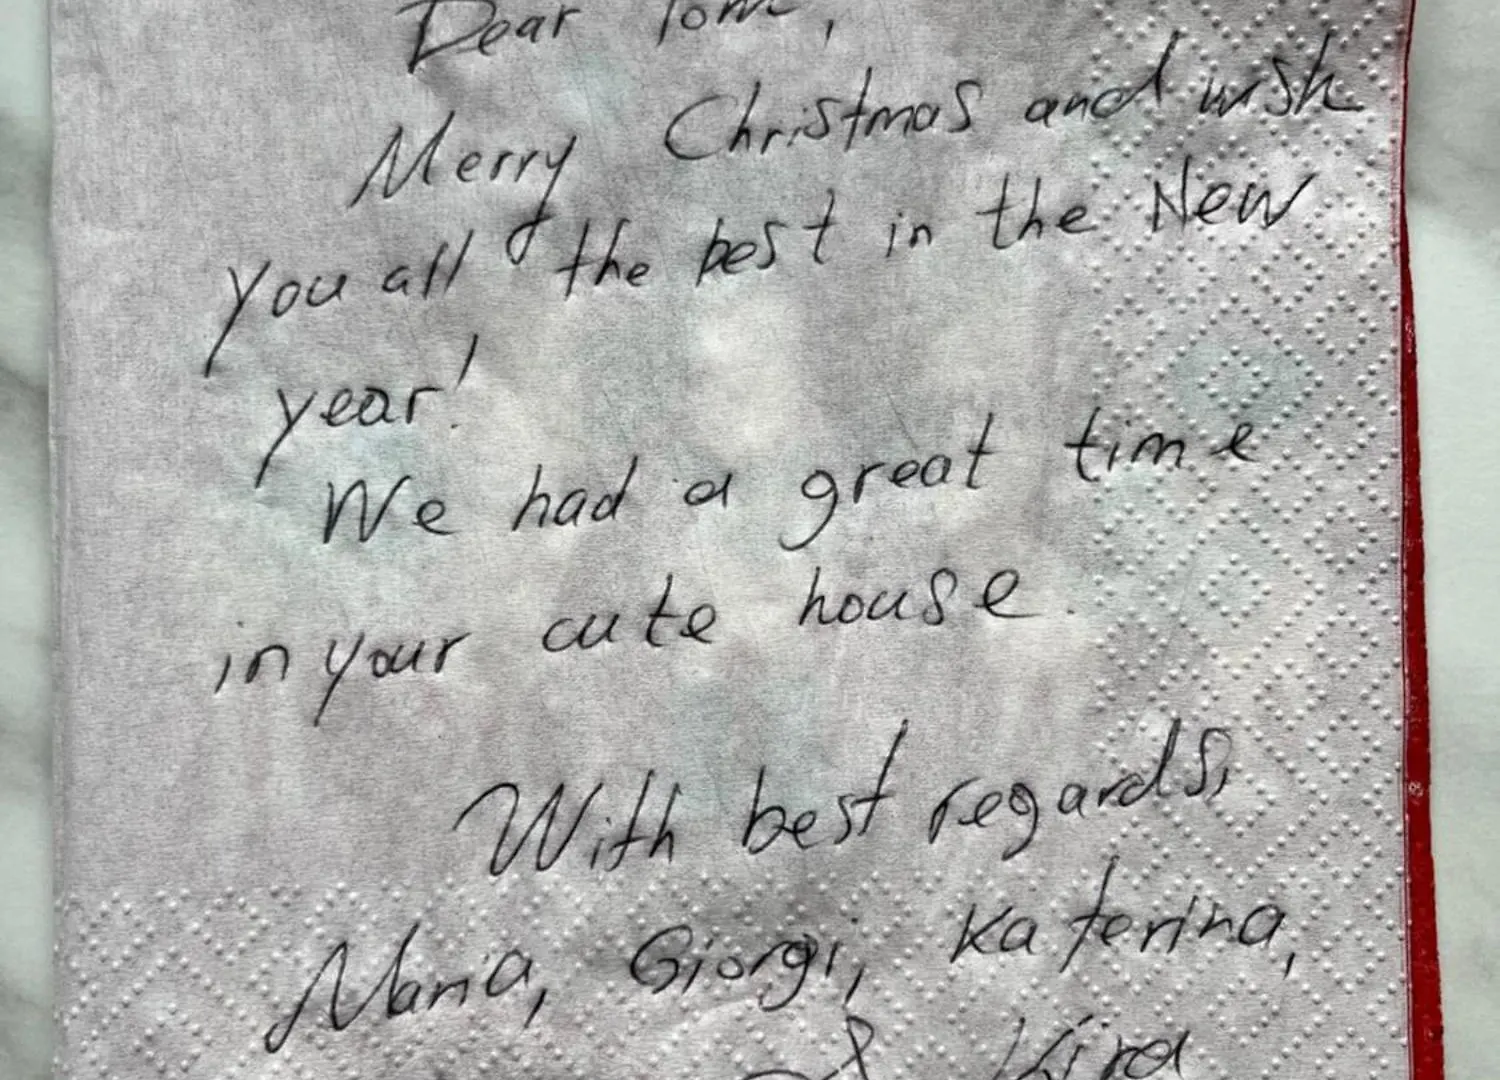 Dear Tom,
Merry Christmas and wish
you all the best in the New
year!
We had a great time
in your cute house.
With best regards,
Giorgi, Katerina,
& Kira